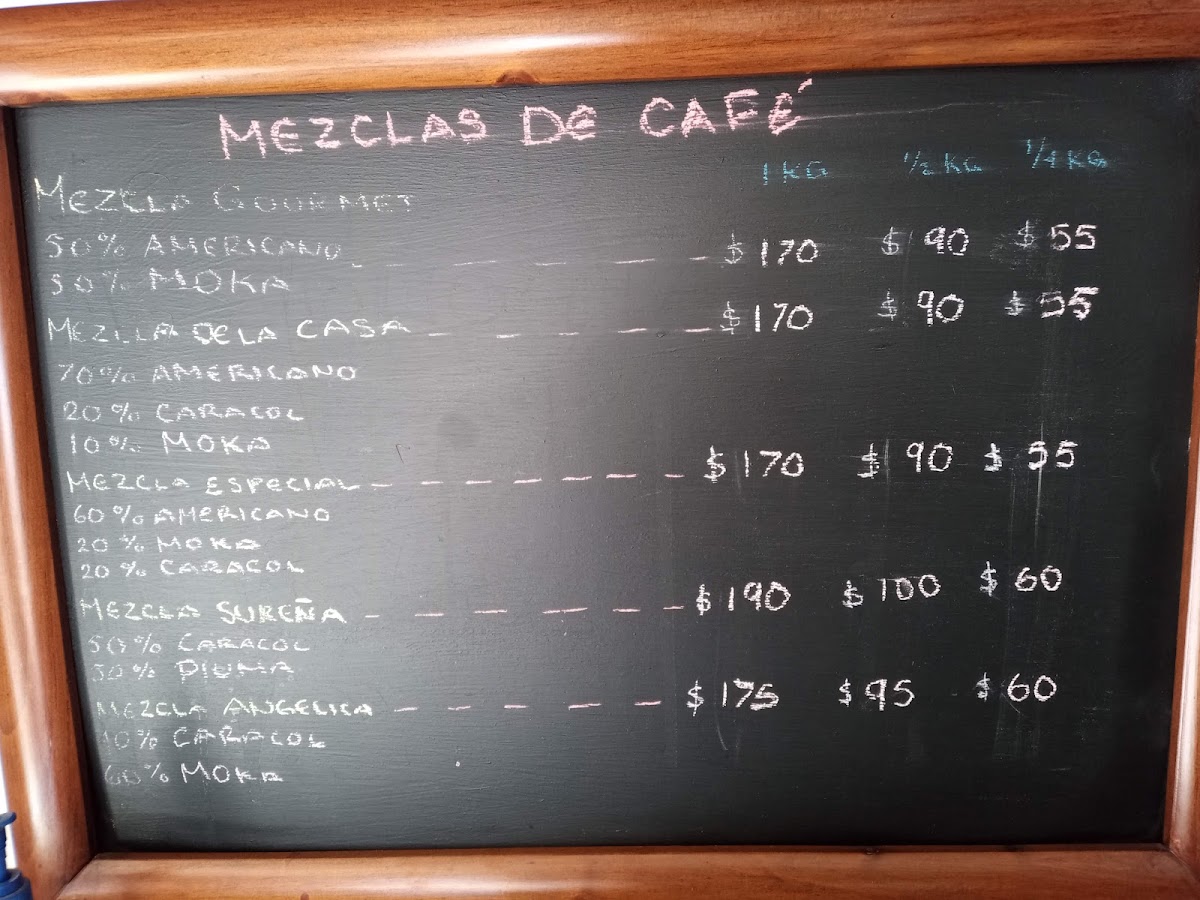 MEZCLAS DE CAFÉ
1 KG 1/2 KG 1/4 KG
MEZCLA GOURMET
50% AMERICANO $ 170 $ 90 $ 55
50% MOKA
MEZCLA DE LA CASA $ 170 $ 90 $ 55
70% AMERICANO
20% CARACOL
10% MOKA
MEZCLA ESPECIAL $ 170 $ 90 $ 55
60% AMERICANO
20% MOKA
20% CARACOL
MEZCLA SUREÑA $ 190 $ 100 $ 60
50% CARACOL
50% PLUMA
MEZCLA ANGELICA $ 175 $ 95 $ 60
40% CARACOL
60% MOKA